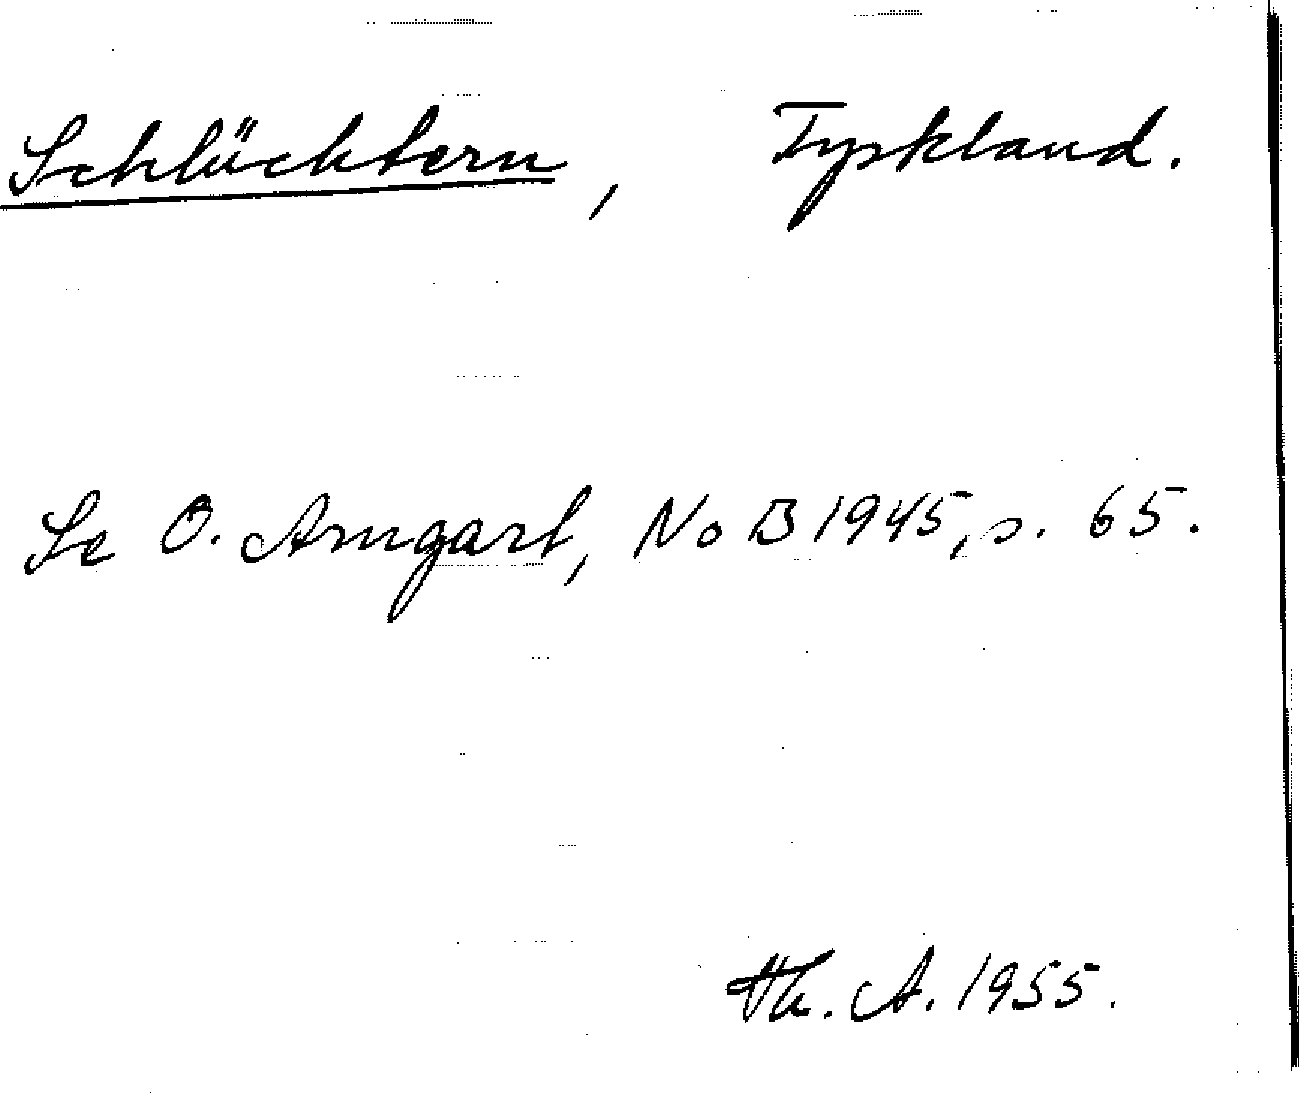 Schlüchtern, Tyskland.
Se O. Arngart, NoB 1945, s. 65.
Th. A. 1955.